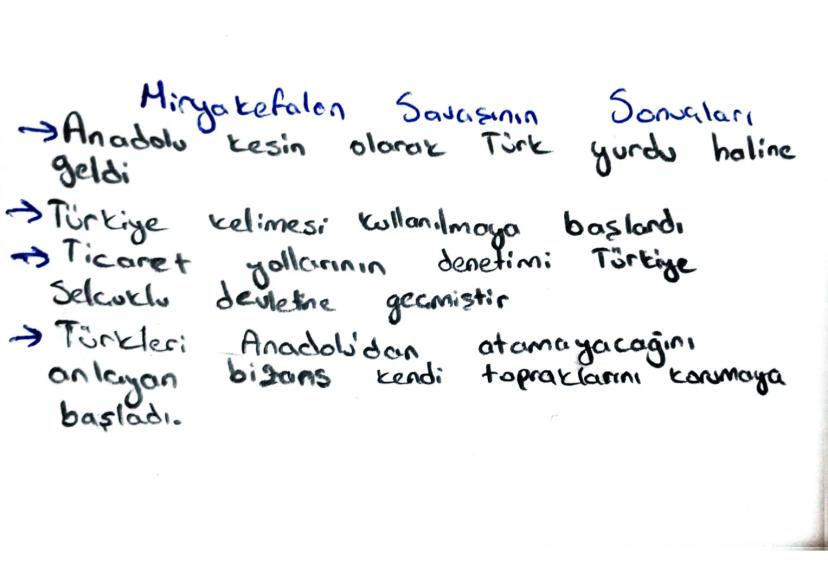 Miryakefalon Savaşının Sonuçları
→ Anadolu kesin olarak Türk yurdu haline
geldi
→ Türkiye kelimesi kullanılmaya başlandı
→ Ticaret yollarının denetimi Türkiye
Selçuklu devletine geçmiştir
→ Türkleri Anadolu'dan atamayacağını
anlayan bizans kendi topraklarını korumaya
başladı.